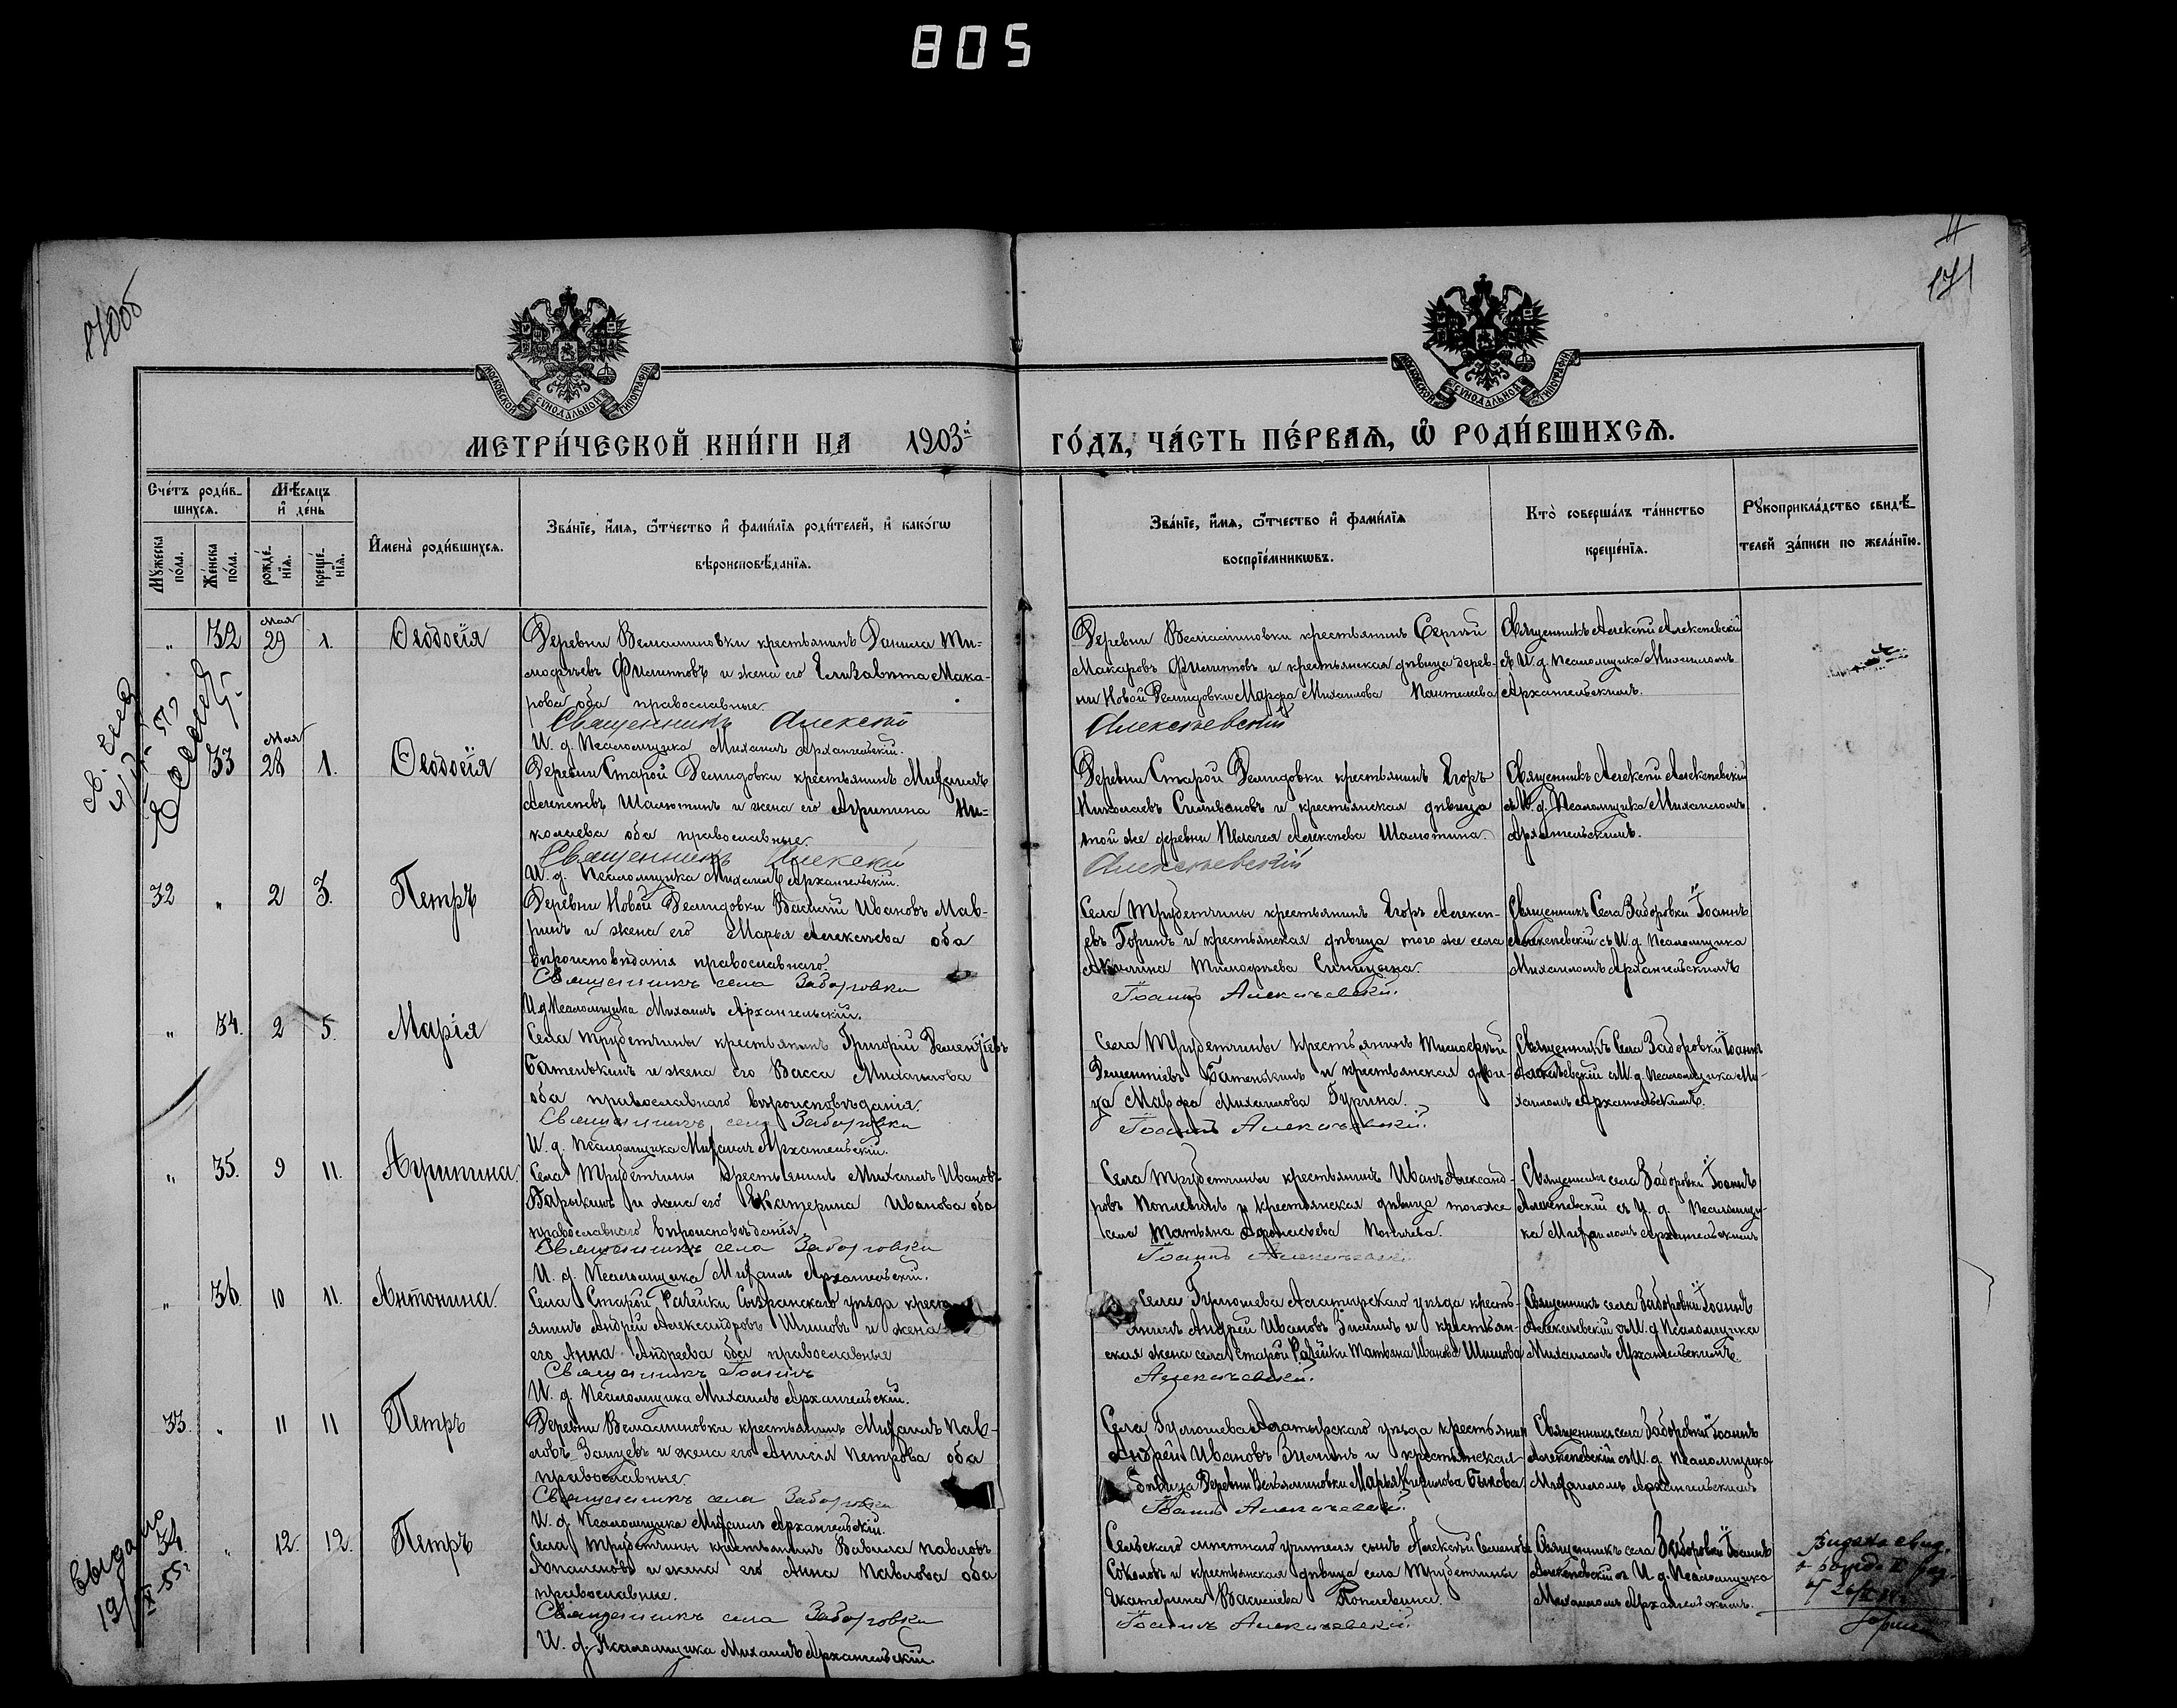 805
170об
171
МОСКОВСКОЙ СУНОДАЛЬНОЙ ТИПОГРАФІИ
МОСКОВСКОЙ СУНОДАЛЬНОЙ ТИПОГРАФІИ
МЕТРИ́ЧЕСКОЙ КНИ́ГИ НА 1903й ГО́ДЪ, ЧА́СТЬ ПЕ́РВАѦ, Ѡ РОДИ́ВШИХСѦ.
Сче́тъ роди́в-
шихсѧ.
Мѣ́сѧцъ
и де́нь
Мꙋжеска
по́ла.
Же́нска
по́ла.
рожде́-
нїѧ.
креще́-
нїѧ.
Имена̀ роди́вшихсѧ.
Зва́нїе, и́мѧ, ѿтчество и фами́лїѧ роди́телей, и како́гѡ
вѣроисповѣ́данїѧ.
Зва́нїе, и́мѧ, ѿтчество и фами́лїѧ
воспрїе́мникѡвъ.
Кто̀ соверша́лъ та́инство
креще́нїѧ.
Рꙋкоприкла́дство свидѣ́-
телей за́писи по жела́нїю.
" 32 Мая 29 1. Ѳеодосія
Деревни Вельяминовки крестьянинъ Данила Ти-
моѳѣевъ Филипповъ и жена его Елизавета Мака-
рова оба православные
Священникъ Алексѣй
И. д. Псаломщика Михаилъ Архангельскій.
Деревни Вельяминовки крестьянинъ Сергѣй
Макаровъ Филипповъ и крестьянская дѣвица дерев-
ни Новой Демидовки Марѳа Михайлова Пантелеева
Алексѣевскій
Священникъ Алексѣй Алексѣевскій
съ И. д. Псаломщика Михаиломъ
Архангельскимъ.
33 Мая 28 1. Ѳеодосія
Деревни Старой Демидовки крестьянинъ Михаилъ
Алексѣевъ Шалютинъ и жена его Агрипина Ни-
колаева оба православные.
Священникъ Алексѣй
И. д. Псаломщика Михаилъ Архангельскій.
Деревни Старой Демидовки крестьянинъ Егоръ
Николаевъ Селивановъ и крестьянская дѣвица
той же деревни Пелагея Алексѣева Шалютина.
Алексѣевскій
Священникъ Алексѣй Алексѣевскій
съ И. д. Псаломщика Михаиломъ
Архангельскимъ.
32 " 2 3. Петръ
Деревни Новой Демидовки Василій Ивановъ Мав-
ринъ и жена его Марья Алексѣева оба
вѣроисповѣданія православнаго.
Священникъ села Заборовки
И. д. Псаломщика Михаилъ Архангельскій.
Села Трубетчины крестьянинъ Егоръ Алексѣ-
евъ Горинъ и крестьянская дѣвица того же села
Акилина Тимоѳѣева Синицына.
Іоаннъ Алексѣевскій.
Священникъ Села Заборовки Іоаннъ
Алексѣевскій съ И. д. Псаломщика
Михаиломъ Архангельскимъ
" 34. 2 5. Марія
Села Трубетчины крестьянинъ Григорій Дементіевъ
Батенькинъ и жена его Васса Михайлова
оба православнаго вѣроисповѣданія.
Священникъ села Заборовки
И. д. Псаломщика Михаилъ Архангельскій.
Села Трубетчины крестьянинъ Тимоѳѣй
Дементіевъ Батенькинъ и крестьянская дѣви-
ца Марѳа Михайлова Гурина.
Іоаннъ Алексѣевскій.
Священникъ Села Заборовки Іоаннъ
Алексѣевскій съ И. д. Псаломщика Ми-
хаиломъ Архангельскимъ.
" 35. 9 11. Агрипина
Села Трубетчины крестьянинъ Михаилъ Ивановъ
Барыкинъ и жена его Екатерина Иванова оба
православнаго вѣроисповѣданія
Священникъ села Заборовки
И. д. Псаломщика Михаилъ Архангельскій.
Села Трубетчины крестьянинъ Иванъ Александ-
ровъ Поплевинъ и крестьянская дѣвица того же
села Татьяна Аѳонасьева
Іоаннъ Алексѣевскій.
Священникъ села Заборовки Іоаннъ
Алексѣевскій съ И. д. Псаломщи-
ка Михаиломъ Архангельскимъ
" 36. 10 11. Антонина.
Села Старой Рачейки Сызранскаго уѣзда кресть-
янинъ Андрей Александровъ Шишовъ и жена
его Анна Андреева оба православные
Священникъ Іоаннъ
И. д. Псаломщика Михаилъ Архангельскій.
Села Гулюшева Алатырскаго уѣзда кресть-
янинъ Андрей Ивановъ Зиминъ и крестьян-
ская жена села Старой Рачейки Татьяна Иванова Шишова
Алексѣевскій.
Священникъ села Заборовки Іоаннъ
Алексѣевскій съ И. д. Псаломщика
Михаиломъ Архангельскимъ.
33. " 11 11 Петръ
Деревни Вельяминовки крестьянинъ Михаилъ Пав-
ловъ Зайцевъ и жена его Анисія Петрова оба
православные
Священникъ села Заборовки
И. д. Псаломщика Михаилъ Архангельскій.
Села Гулюшева Алатырскаго уѣзда крестьянин
Андрей Ивановъ Зиминъ и крестьянская
дѣвица Деревни Вельяминовки Марья Кирилова Быкова
Іоаннъ Алексѣевскій.
Священникъ села Заборовки Іоаннъ
Алексѣевскій съ И. д. Псаломщика
Михаиломъ Архангельскимъ
34. " 12. 12. Петръ
Села Трубетчины крестьянинъ Вавила Павловъ
и жена его Анна Павлова оба
православные.
Священникъ села Заборовки
И. д. Псаломщика Михаилъ Архангельскій.
Сельскаго учителя сынъ Алексѣй Семеновъ
Соколовъ и крестьянская дѣвица села Трубетчины
Екатерина Васильева Поплевина.
Іоаннъ Алексѣевскій.
Священникъ села Заборовки Іоаннъ
Алексѣевскій съ И. д. Псаломщика
Михаиломъ Архангельскимъ.
Выдано
19/IX-55г